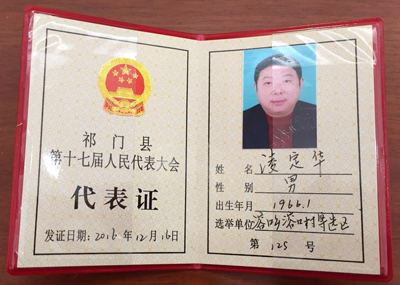 祁门县
第十七届人民代表大会
代表证
发证日期：2016年12月16日
姓名 凌定华
性别 男
出生年月 1966.1
选举单位 溶口村等选区
第 125 号